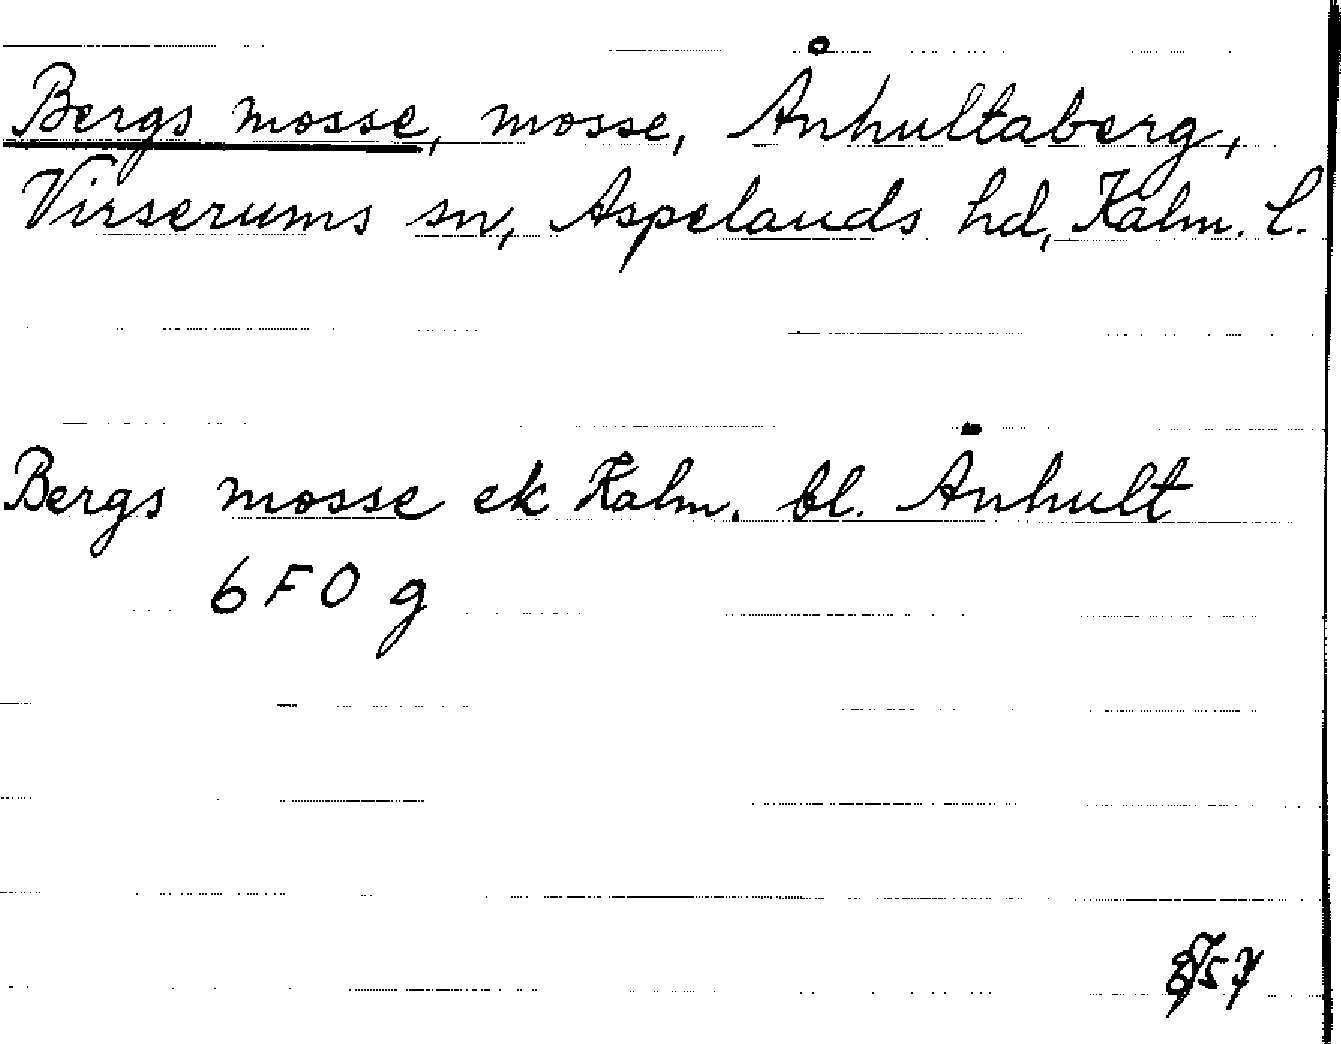 Bergs mosse, mosse, Ånhultaberg,
Virserums sn, Aspelands hd, Kalm. l.
Bergs mosse ek Kalm. bl. Ånhult
6 F O g